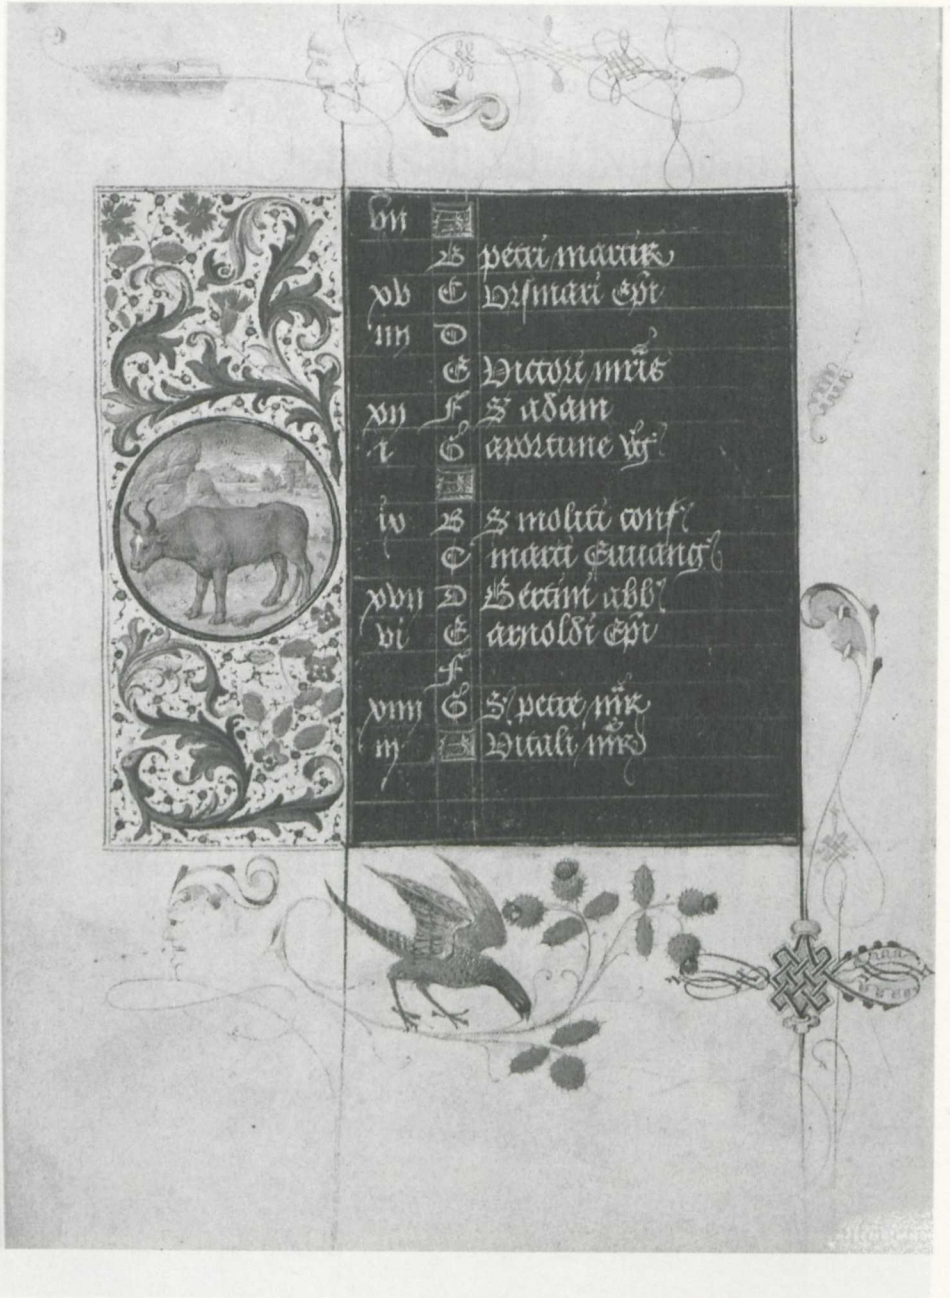 vii A
B petri martir
xv C Ursmari Epi
iiii D
E Victori mris
xii F S adam
i G aportune vg
A
ix B S moliti conf
C marci Euuang
xvii D Bertini abb
vi E arnoldi Epi
F
xiiii G S petre mr
iii A Vitali mr